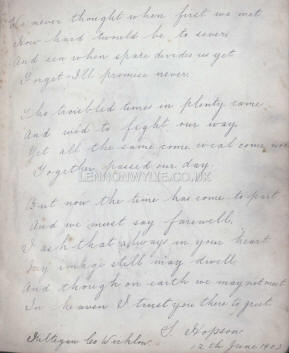 We never thought when first we met
How hard twould be to sever
And een when space divides us yet
Forget I'll promise never.
The troubled times in plenty came
And wed to fight our way
Yet all the same come weal come woe
Together passed our day
LENNONWYLIE.CO.UK
But now the time has come to part
And we must say farewell,
I ask that always in your heart
My image still may dwell
And though on earth we may not meet
In heaven I trust you there to greet
S Hopson
Kiltegan Co Wicklow.
12th June 1903